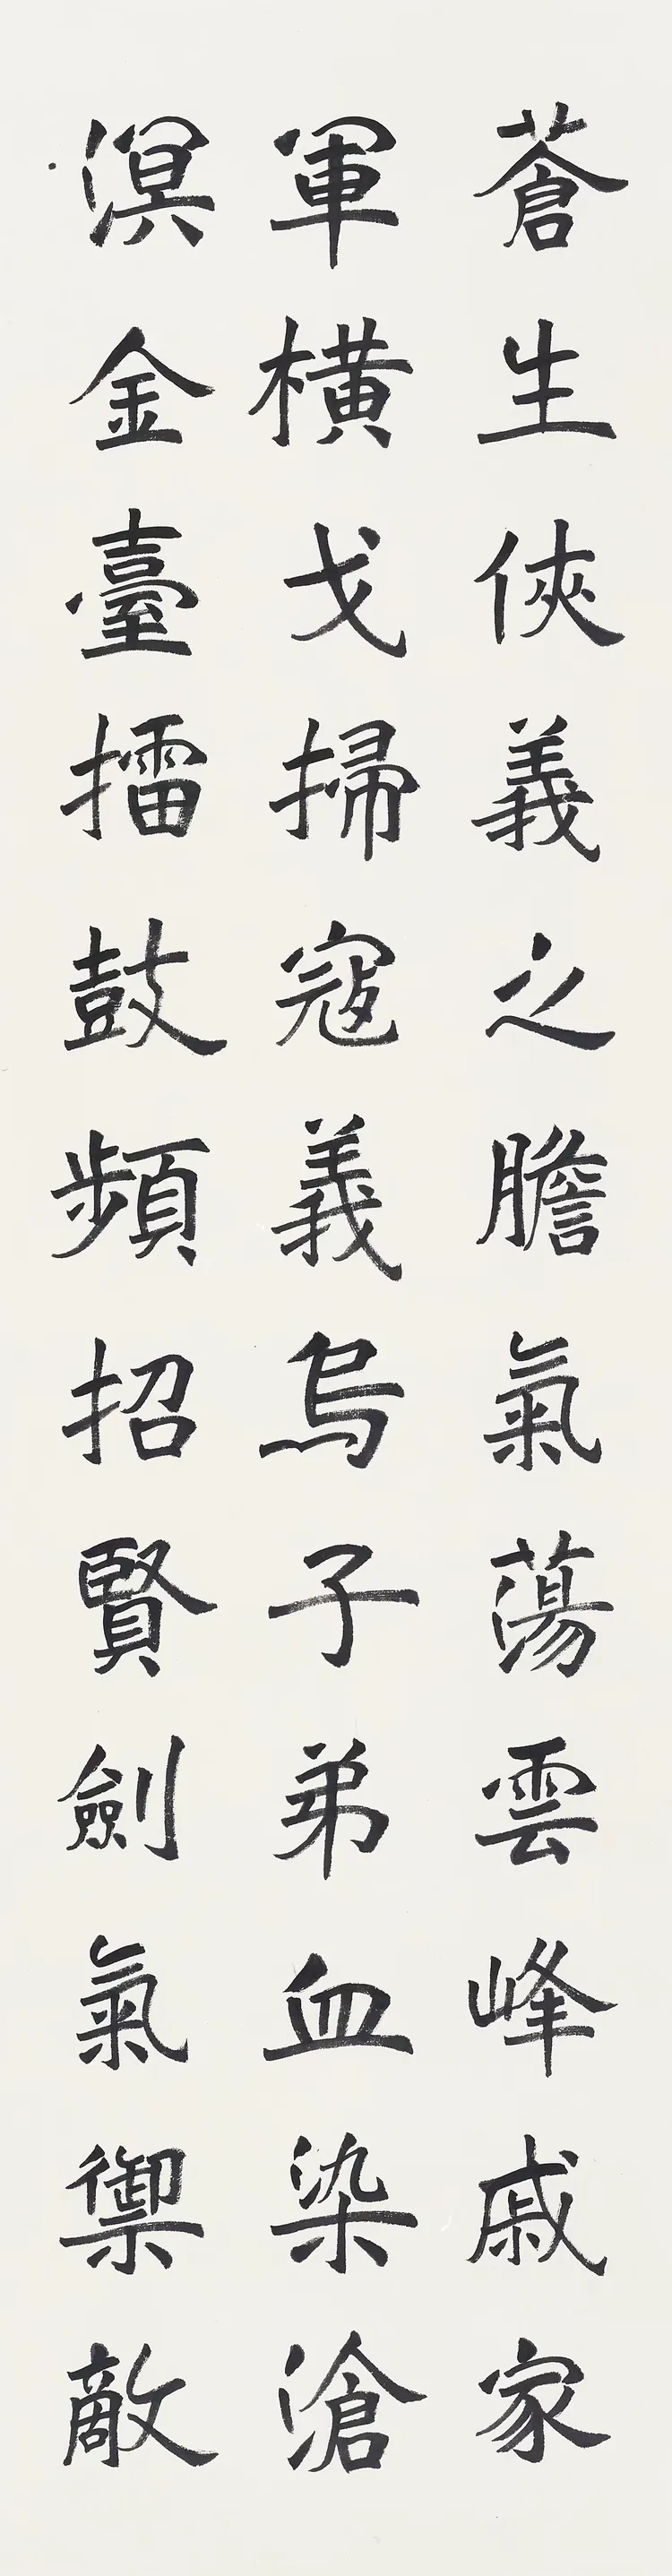 蒼生俠義之膽氣蕩雲峰戚家
軍橫戈掃寇義烏子弟血染滄
溟金臺擂鼓頻招賢劍氣禦敵